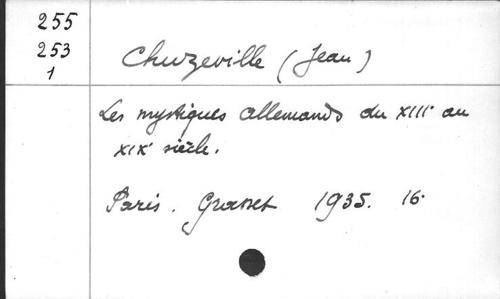 255
253
1
Chuzeville (Jean)
Les mystiques allemands du XIIIe au
XIXe siècle.
Paris. Grasset 1935. 16°